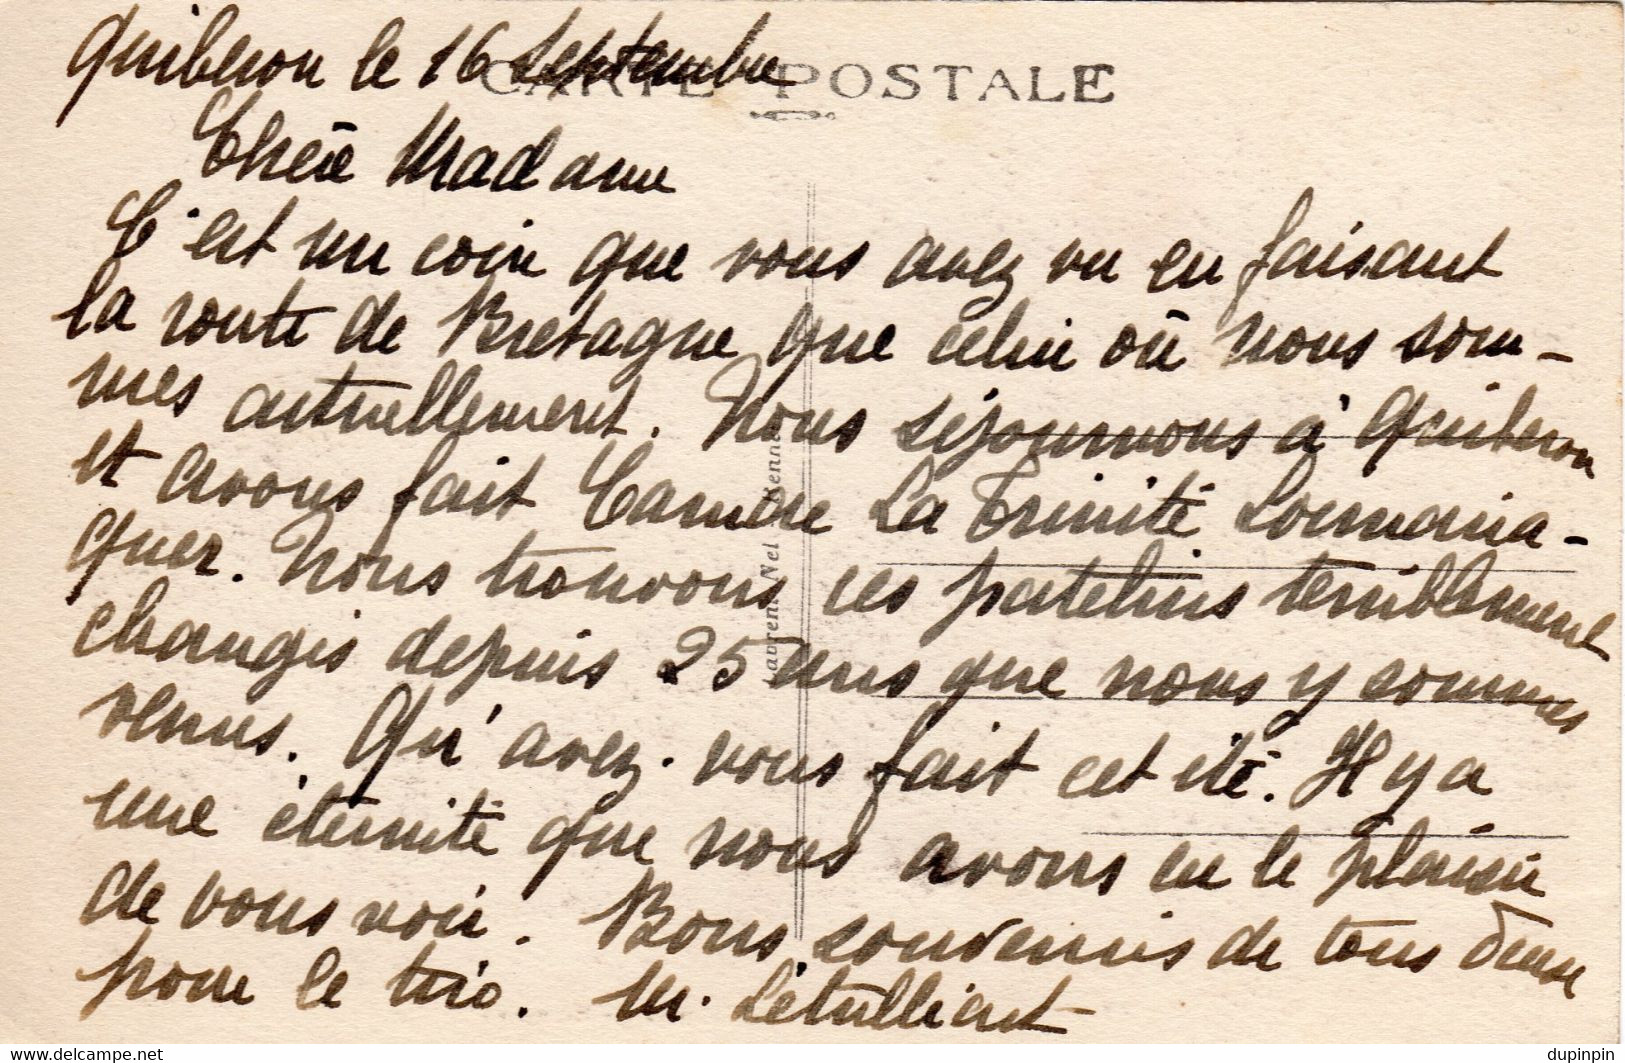 Quiberon le 16 Septembre
CARTE POSTALE
Chère Madame
C'est un coin que vous avez vu en faisant
la route de Bretagne que celui où nous som-
mes actuellement. Nous séjournons à Quiberon
et avons fait Carnac La Trinité Locmaria-
quer. Nous trouvons ces patelins terriblement
changés depuis 25 ans que nous y sommes
venus. Qu'avez-vous fait cet été. Il y a
une éternité que nous avons eu le plaisir
de vous voir. Bons souvenirs de tous deux
pour le trio. M. Létulliart
Laurent Nel Rennes
www.delcampe.net
dupinpin